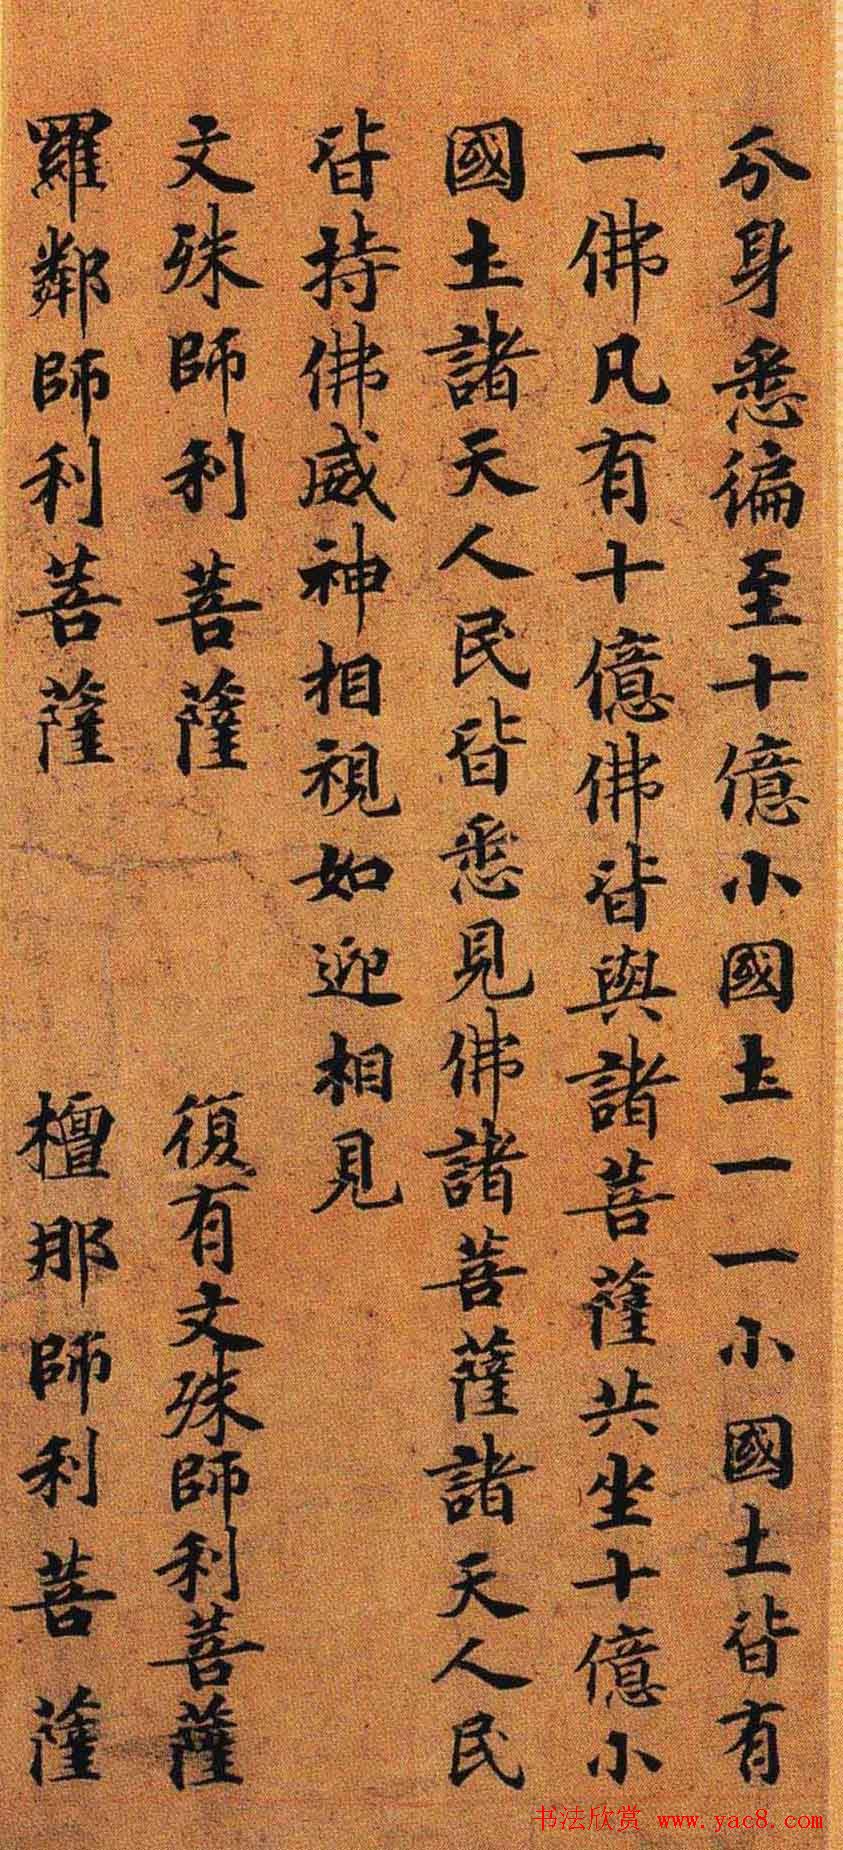 分身悉徧至十億小國土一一小國土皆有
一佛凡有十億佛皆與諸菩薩共坐十億小
國土諸天人民皆悉見佛諸菩薩諸天人民
皆持佛威神相視如迎相見
文殊師利菩薩 復有文殊師利菩薩
羅鄰師利菩薩 檀那師利菩薩
书法欣赏 www.yac8.com